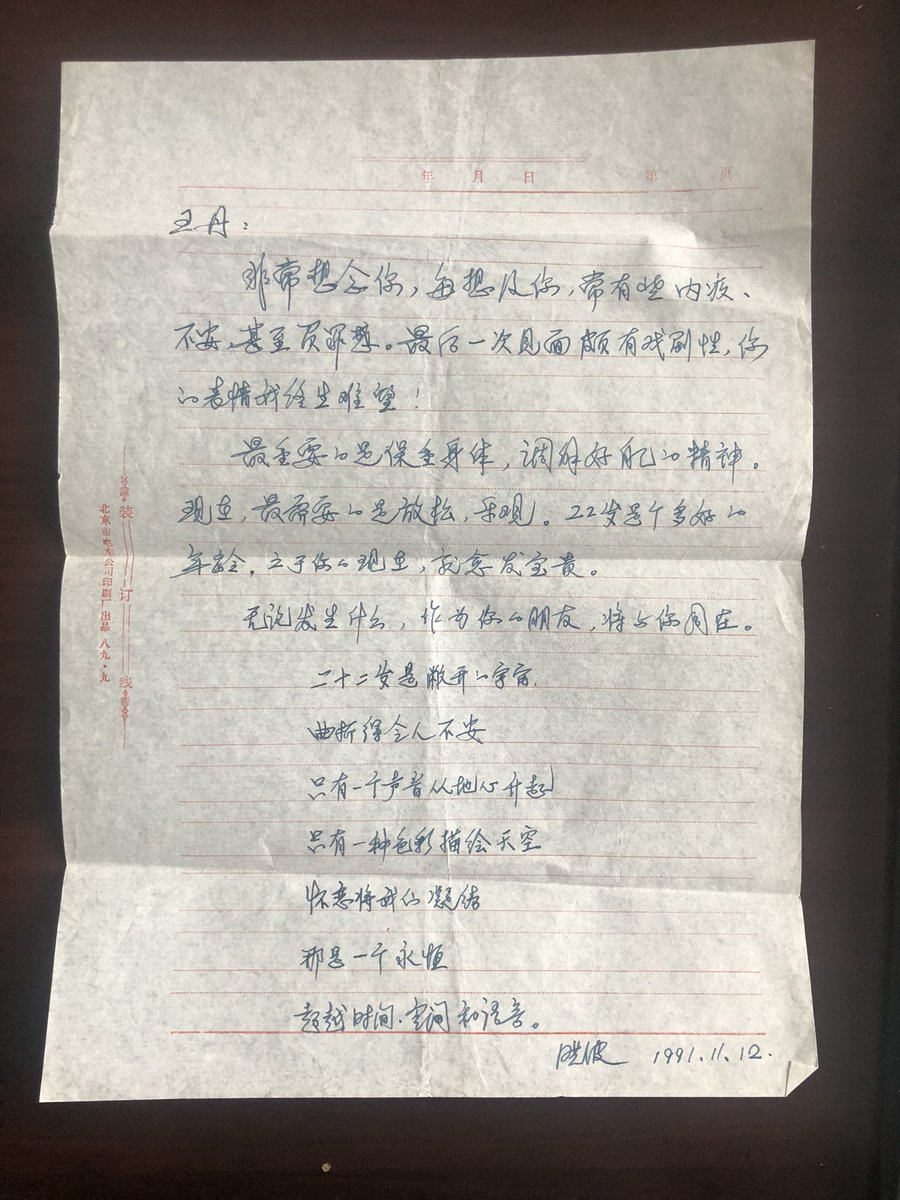 年 月 日 第 页
王丹：
非常想念你，每想及你，常有些内疚、
不安，甚至负罪感。最后一次见面颇有戏剧性，你
的表情我终生难望！
最重要的是保重身体，调解好自己的精神。
现在，最需要的是放松，乐观。22岁是个多好的
年龄。立于你的现在，就愈发宝贵。
无论发生什么，作为你的朋友，将与你同在。
二十二岁是敞开的宇宙，
曲折得令人不安
只有一个声音从地心升起
只有一种色彩描绘天空
怀恋将我们凝结
那是一个永恒
超越时间、空间和语言。
波 1991.11.12.
装订线
北京市电车公司印刷厂出品 八九·九